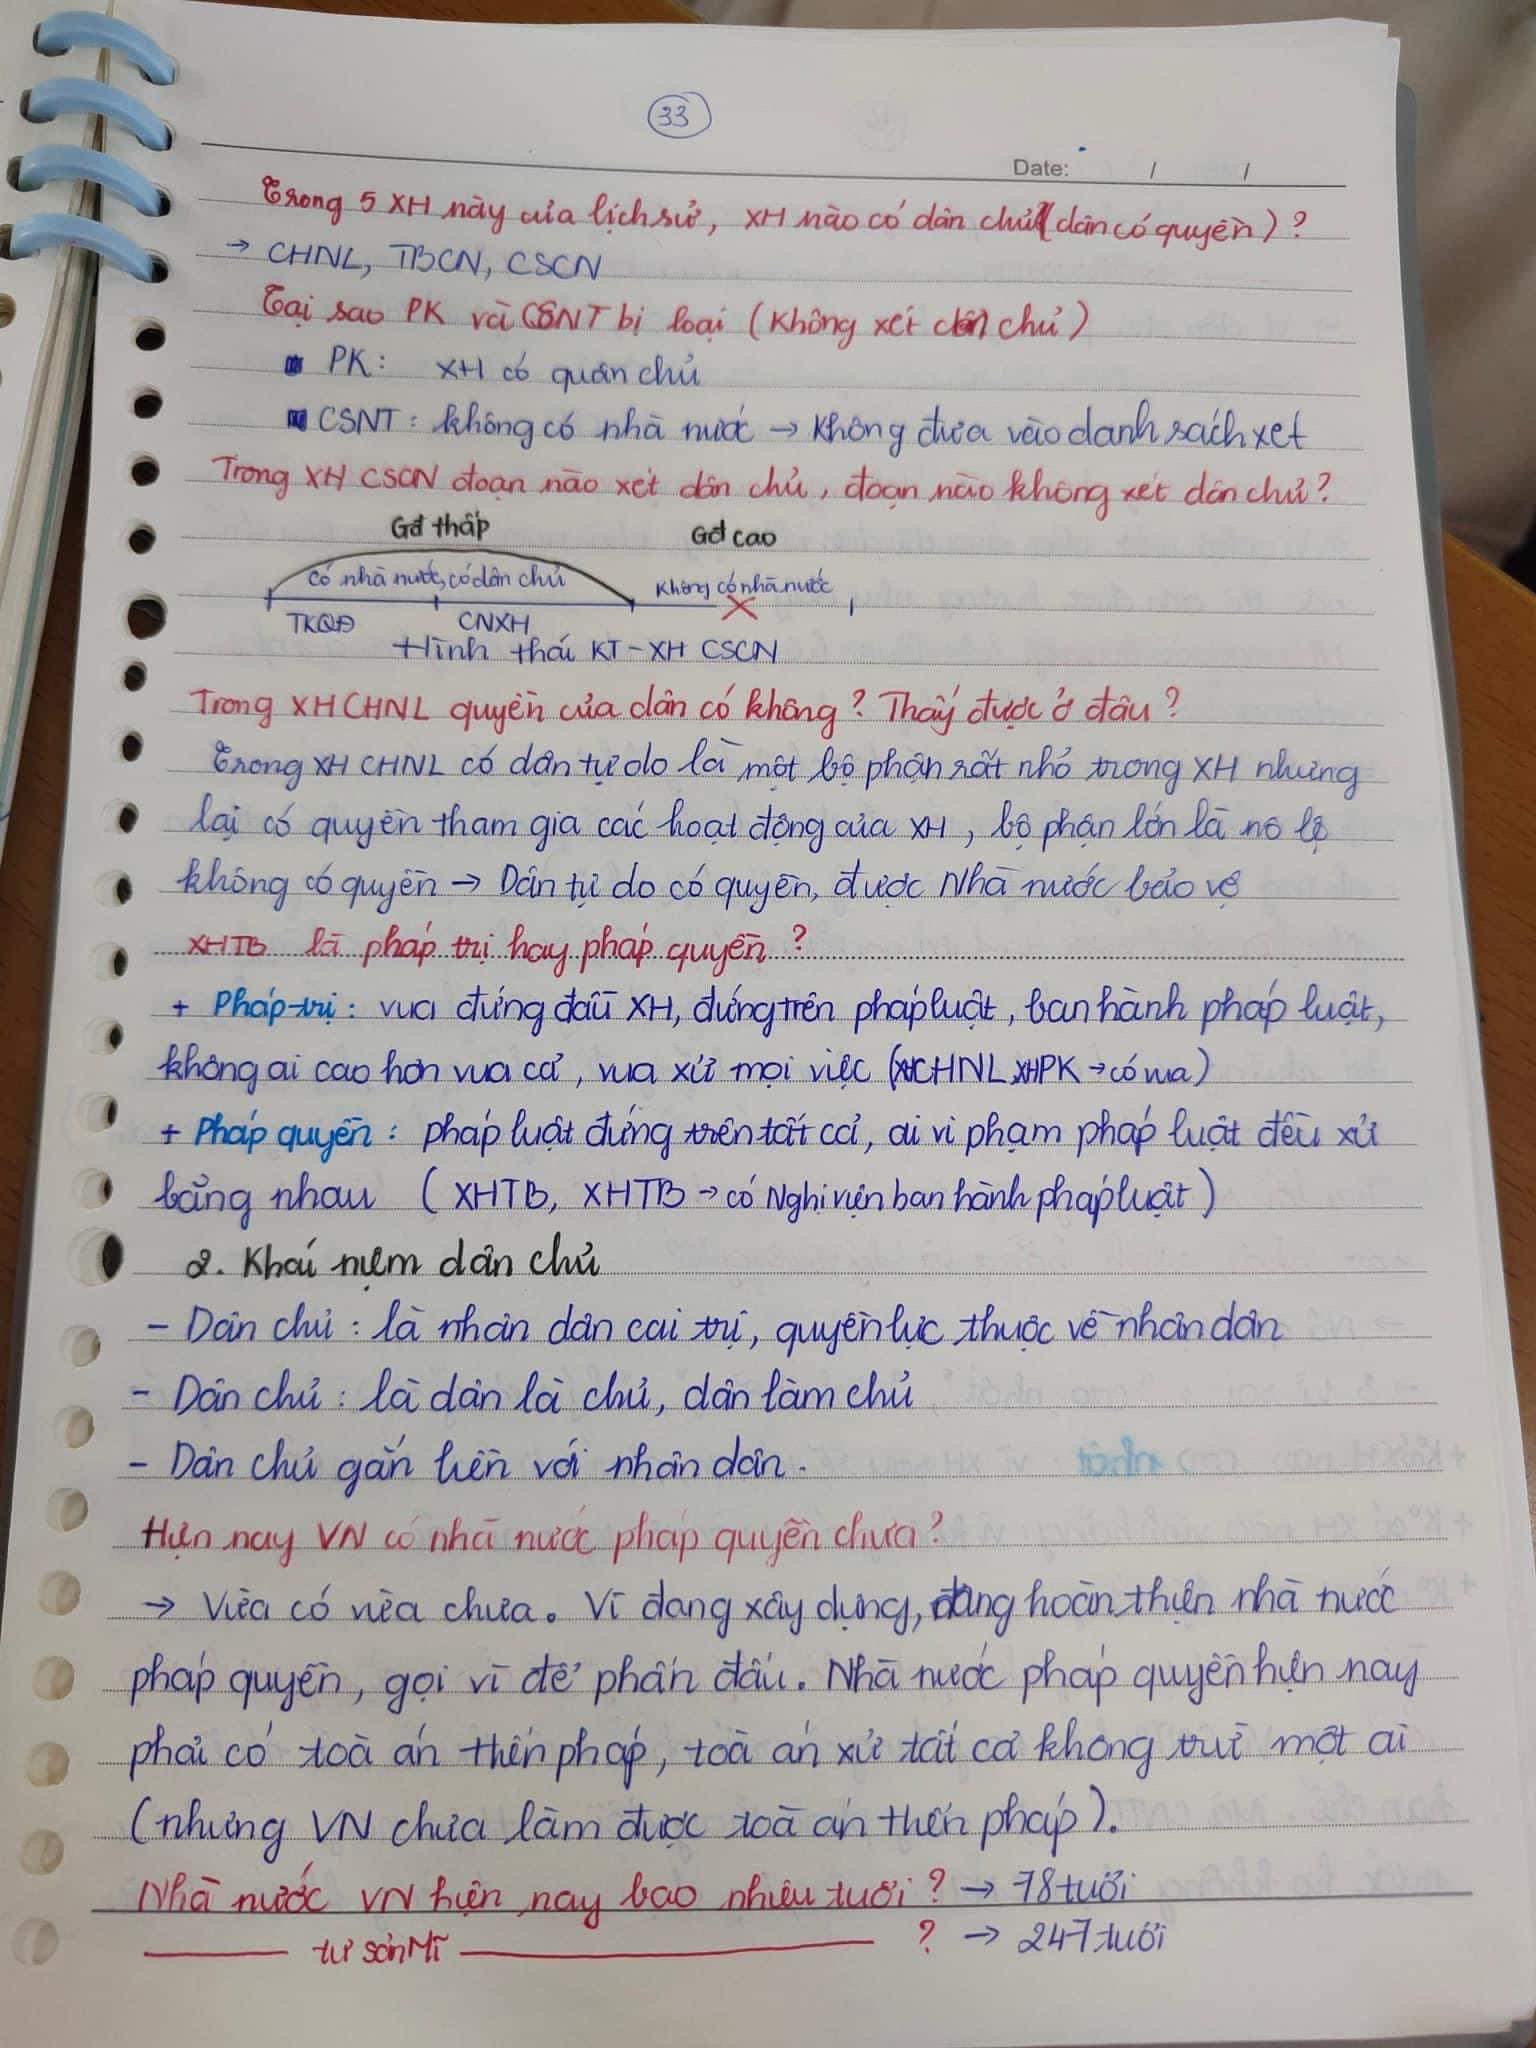 33
Date: / /
Trong 5 XH này của lịch sử, XH nào có dân chủ (dân có quyền)?
→ CHNL, TBCN, CSCN
Tại sao PK và CSNT bị loại (không xét dân chủ)
PK: XH có quân chủ
CSNT: không có nhà nước → không đưa vào danh sách xét
Trong XH CSCN đoạn nào xét dân chủ, đoạn nào không xét dân chủ?
Gđ thấp Gđ cao
có nhà nước, có dân chủ không có nhà nước
TKQĐ CNXH
Hình thái KT-XH CSCN
Trong XH CHNL quyền của dân có không? Thấy được ở đâu?
Trong XH CHNL có dân tự do là một bộ phận rất nhỏ trong XH nhưng
lại có quyền tham gia các hoạt động của XH, bộ phận lớn là nô lệ
không có quyền → Dân tự do có quyền, được Nhà nước bảo vệ
XHTB là pháp trị hay pháp quyền?
+ Pháp trị: vua đứng đầu XH, đứng trên pháp luật, ban hành pháp luật,
không ai cao hơn vua cả, vua xử mọi việc (XHCHNL, XHPK → có vua)
+ Pháp quyền: pháp luật đứng trên tất cả, ai vi phạm pháp luật đều xử
bằng nhau (XHTB, XHTB → có Nghị viện ban hành pháp luật)
2. Khái niệm dân chủ
- Dân chủ: là nhân dân cai trị, quyền lực thuộc về nhân dân
- Dân chủ: là dân là chủ, dân làm chủ
- Dân chủ gắn liền với nhân dân.
Hiện nay VN có nhà nước pháp quyền chưa?
→ Vừa có vừa chưa. Vì đang xây dựng, đang hoàn thiện nhà nước
pháp quyền, gọi vì để phấn đấu. Nhà nước pháp quyền hiện nay
phải có toà án hiến pháp, toà án xử tất cả không trừ một ai
(nhưng VN chưa làm được toà án hiến pháp).
Nhà nước VN hiện nay bao nhiêu tuổi? → 78 tuổi
tư sản Mĩ ? → 247 tuổi